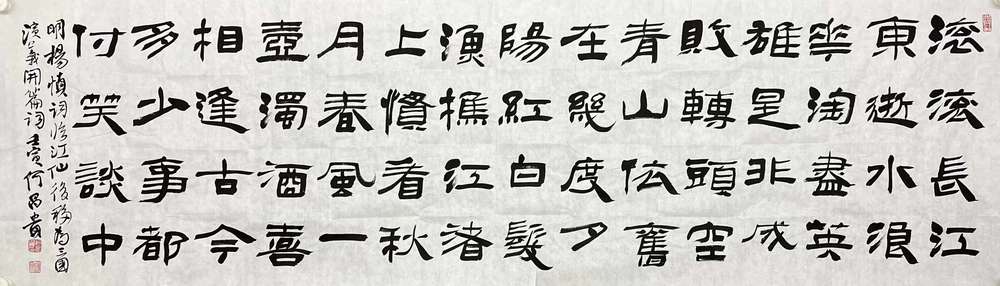 滚滚長江
東逝水浪
華淘盡英
雄是非成
敗轉頭空
青山依舊
在幾度夕
陽紅白髮
漁樵江渚
上慣看秋
月春風一
壺濁酒喜
相逢古今
多少事都
付笑談中
明楊慎詞臨江仙後移為三國
演義開篇詞壬寅何昌貴